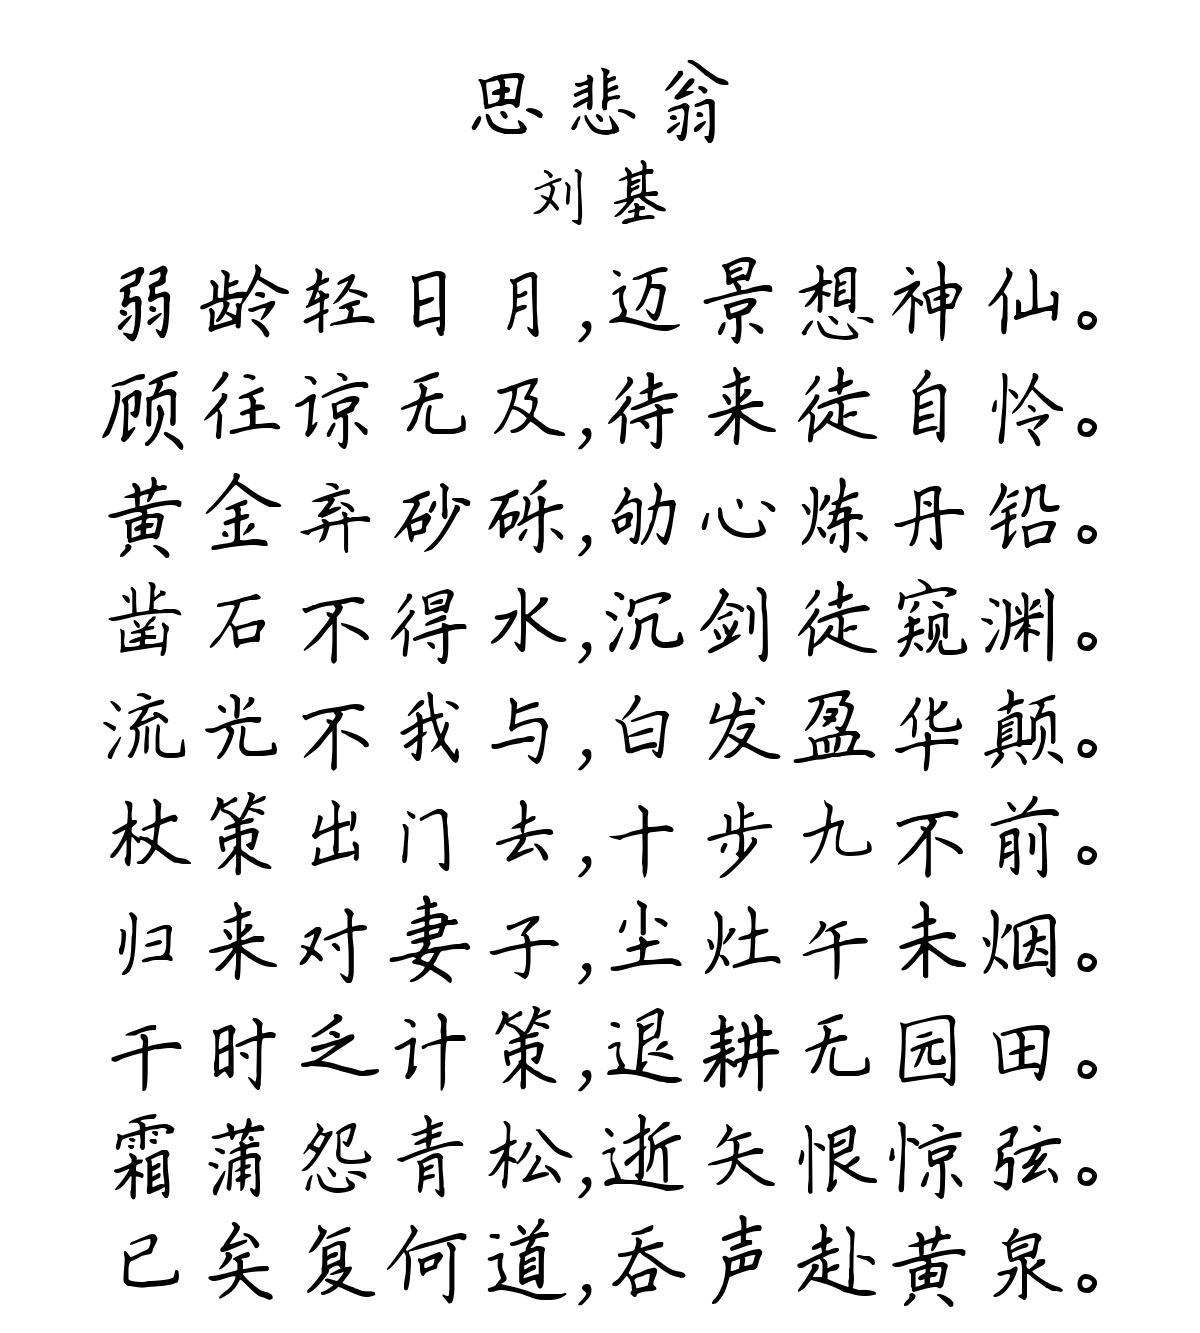 思悲翁
刘基
弱龄轻日月,迈景想神仙。
顾往谅无及,待来徒自怜。
黄金弃砂砾,劬心炼丹铅。
凿石不得水,沉剑徒窥渊。
流光不我与,白发盈华颠。
杖策出门去,十步九不前。
归来对妻子,尘灶午未烟。
干时乏计策,退耕无园田。
霜蒲怨青松,逝矢恨惊弦。
已矣复何道,吞声赴黄泉。